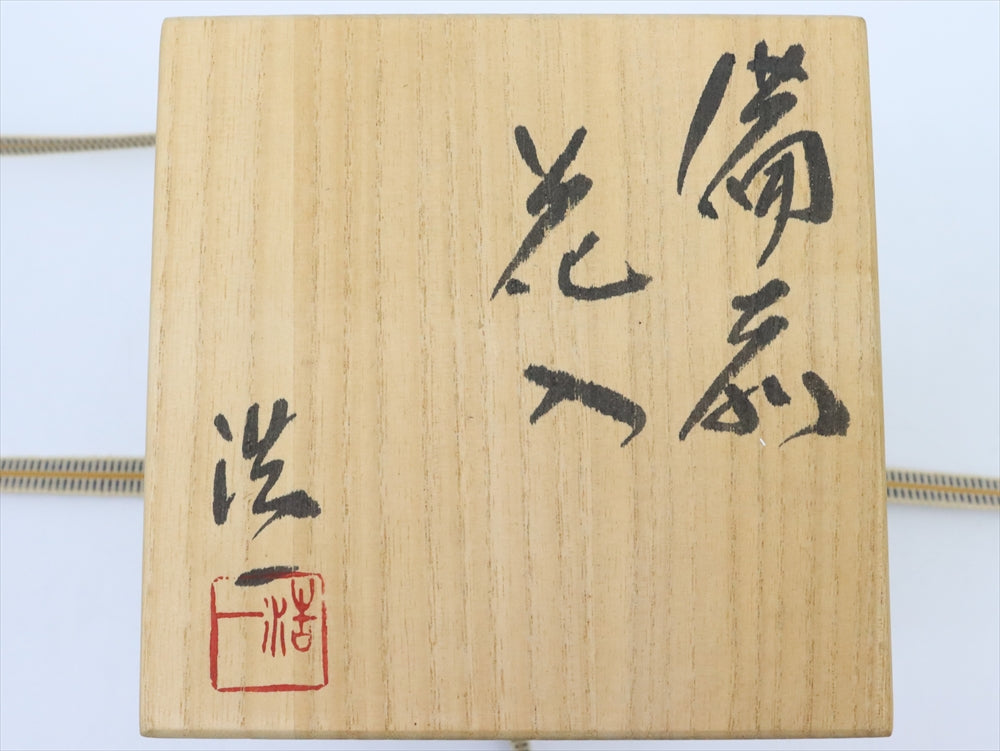 備前
花入
浩一
浩一